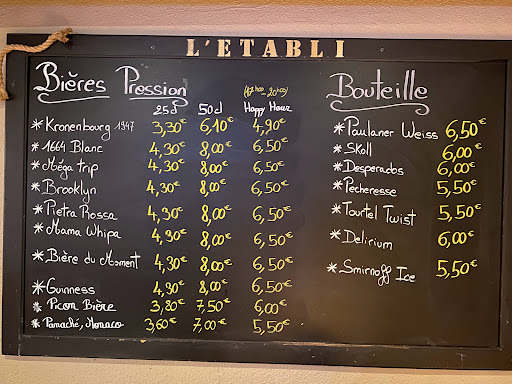 L'ETABLI
Bières Pression
25cl 50cl (17h00 20h00) Happy Hour
*Kronenbourg 1947 3,30€ 6,10€ 4,90€
*1664 Blanc 4,30€ 8,00€ 6,50€
*Méga trip 4,30€ 8,00€ 6,50€
*Brooklyn 4,30€ 8,00€ 6,50€
*Pietra Rossa 4,30€ 8,00€ 6,50€
*Mama Whipa 4,30€ 8,00€ 6,50€
*Bière du Moment 4,30€ 8,00€ 6,50€
*Guinness 4,30€ 8,00€ 6,50€
*Picon Bière 3,80€ 7,50€ 6,00€
*Panaché, Monaco 3,60€ 7,00€ 5,50€
Bouteille
*Paulaner Weiss 6,50€
*Skoll 6,00€
*Desperados 6,00€
*Pécheresse 5,50€
*Tourtel Twist 5,50€
*Delirium 6,00€
*Smirnoff Ice 5,50€